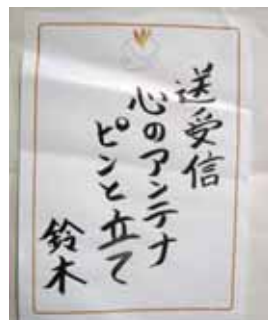 送受信
心のアンテナ
ピンと立て
鈴木